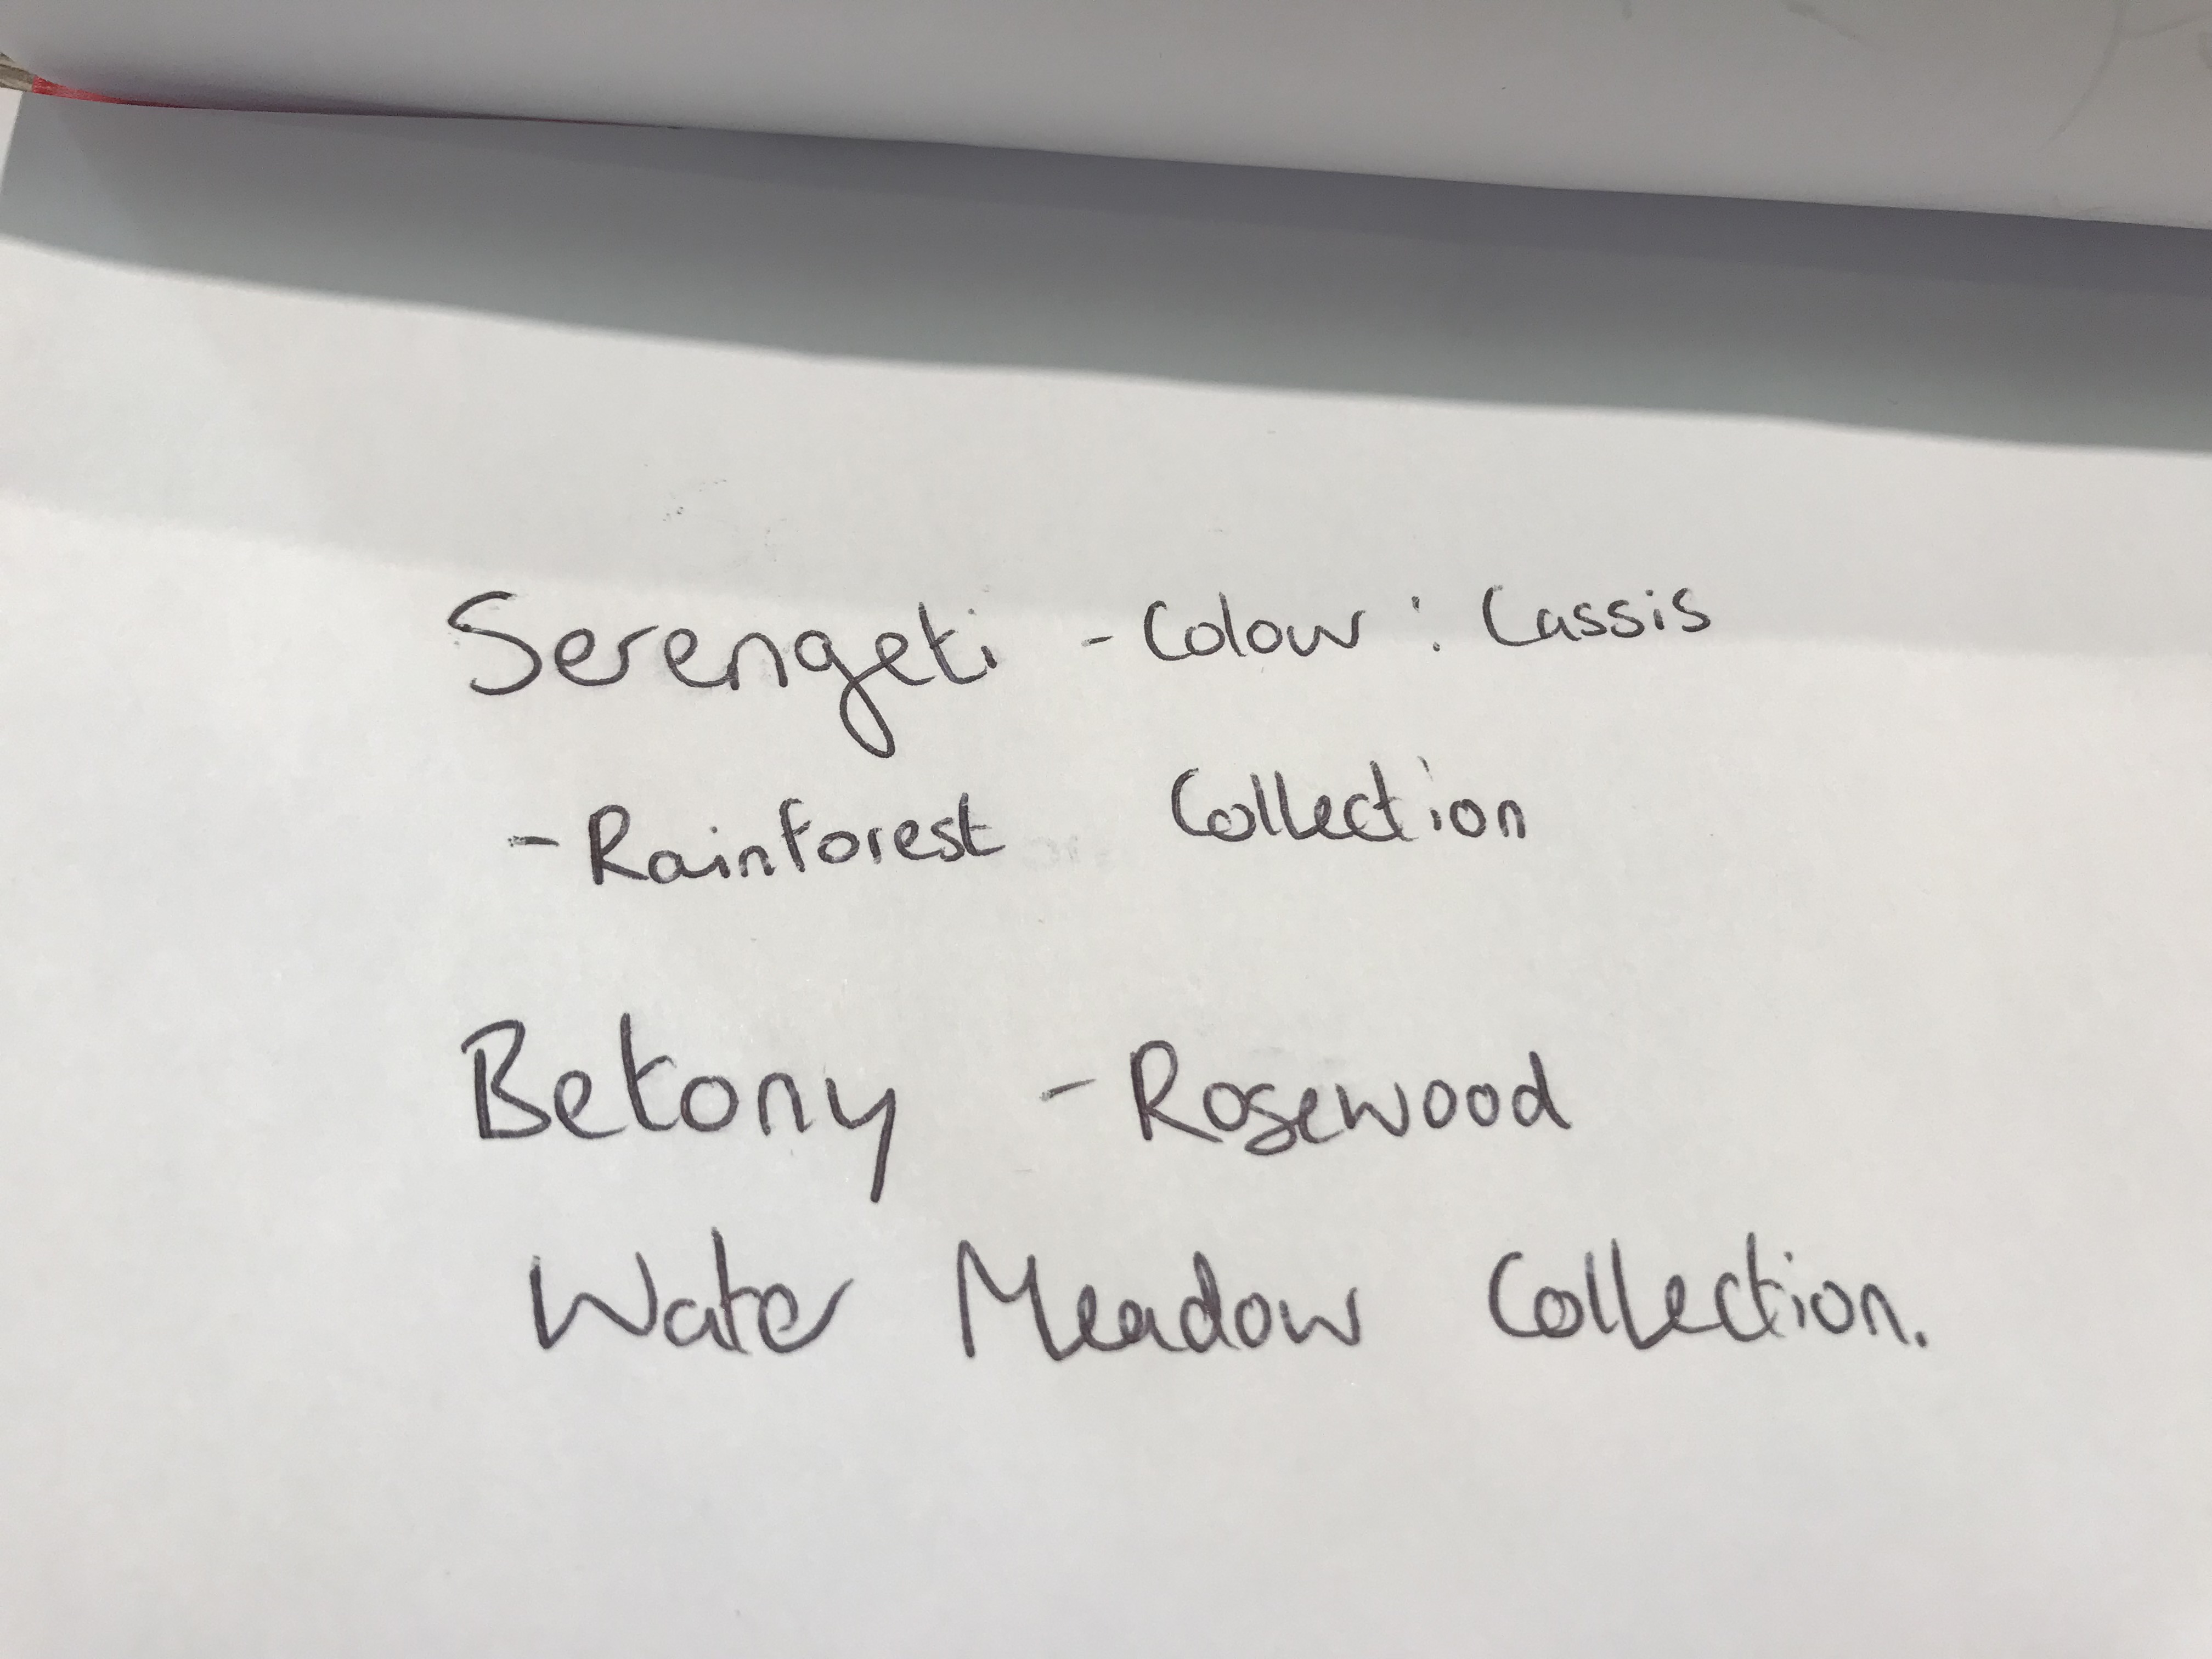 Serengeti - Colour : Cassis
- Rainforest Collection
Betony - Rosewood
Water Meadow Collection.